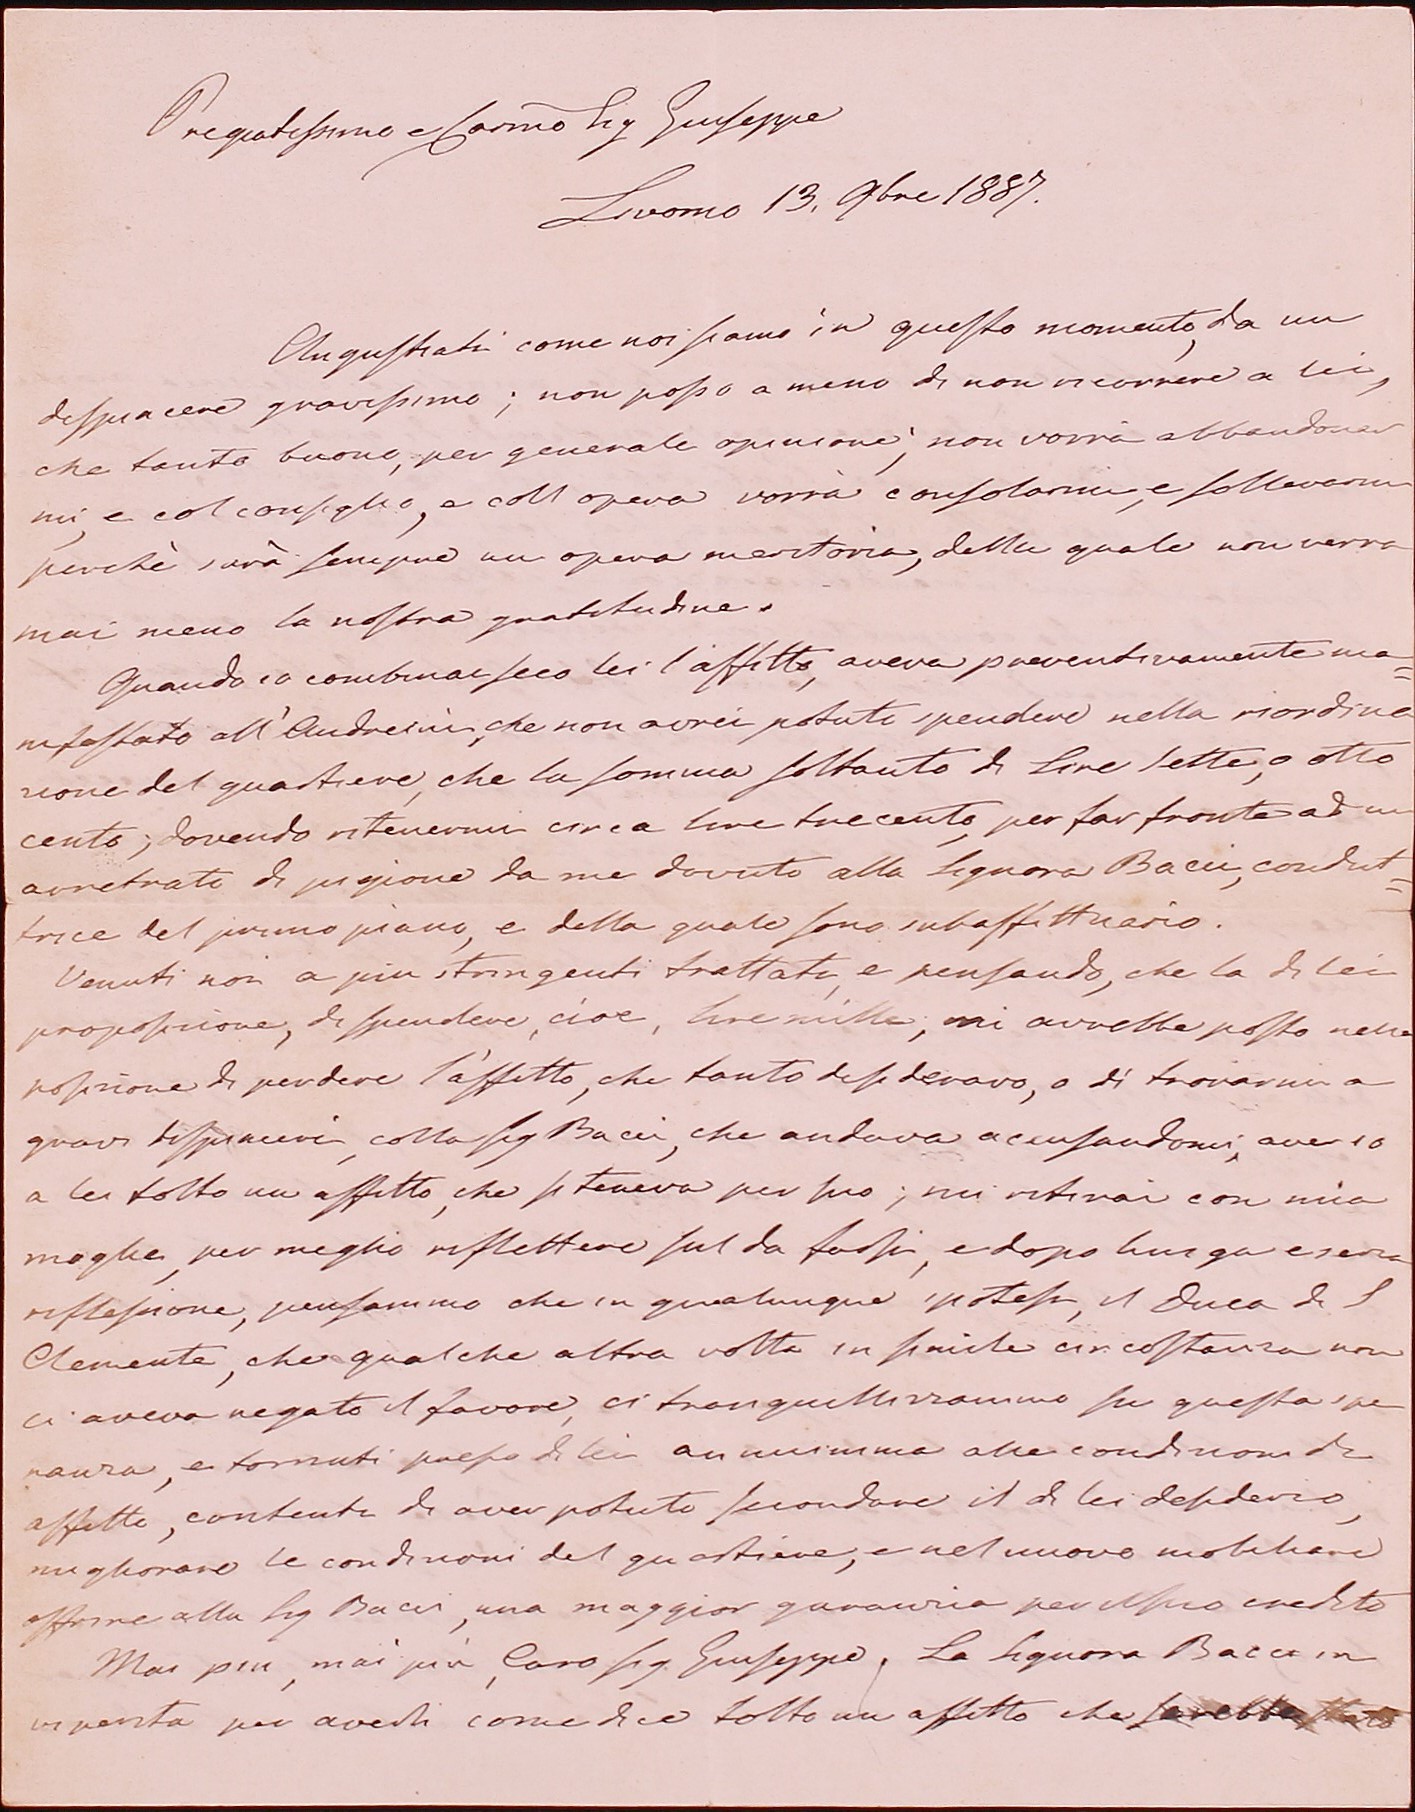 Pregiatissimo e Carmo Sig Giuseppe
Livorno 13. 9bre 1887.
Angustiati come noi siamo in questo momento, da un
dispiacere gravissimo; non posso a meno di non ricorrere a lei,
che tanto buono, per generale opinione, non vorrà abbandonar
mi, e col consiglio, e coll opera vorrà consolarmi, e sollevarmi
perchè sarà sempre un opera meritoria, della quale non verra
mai meno la nostra gratitudine.
Quando io combinai seco lei l'affitto, aveva preventivamente ma=
nifestato all'Andreini, che non avrei potuto spendere nella riordina
zione del quartiere, che la somma soltanto di Lire sette, o otto
cento; dovendo ritenermi circa lire trecento, per far fronte ad un
arretrato di pigione da me dovuto alla Signora Bacci, condut=
trice del primo piano, e della quale sono subaffittuario.
Venuti noi a piu stringenti trattati, e pensando, che la di lei
proposizione, di spendere, cioe, lire mille, mi avrebbe posto nella
posizione di perdere l'affitto, che tanto desideravo, o di trovarmi a
gravi dispiaceri, colla Sig Bacci, che andava accusandomi, aver io
a lei tolto un affitto, che si teneva per suo; mi ritirai con mia
moglie, per meglio riflettere sul da farsi, e dopo lunga e seria
riflessione, pensammo che in qualunque ipotesi, il Duca di S
Clemente, che qualche altra volta in simile circostanza non
ci aveva negato il favore, ci tranquillizzammo su questa spe
ranza, e tornati presso di lei annuimmo alle condizioni di
affitto, contenti di aver potuto secondare il di lei desiderio,
migliorare le condizioni del quartiere, e nel nuovo mobiliare
offrire alla Sig Bacci, una maggior garanzia per il suo credito
Mai piu, mai più, Caro Sig. Giuseppe. La Signora Bacci in
viperita per averli come dice tolto un affitto che sarebbe stato